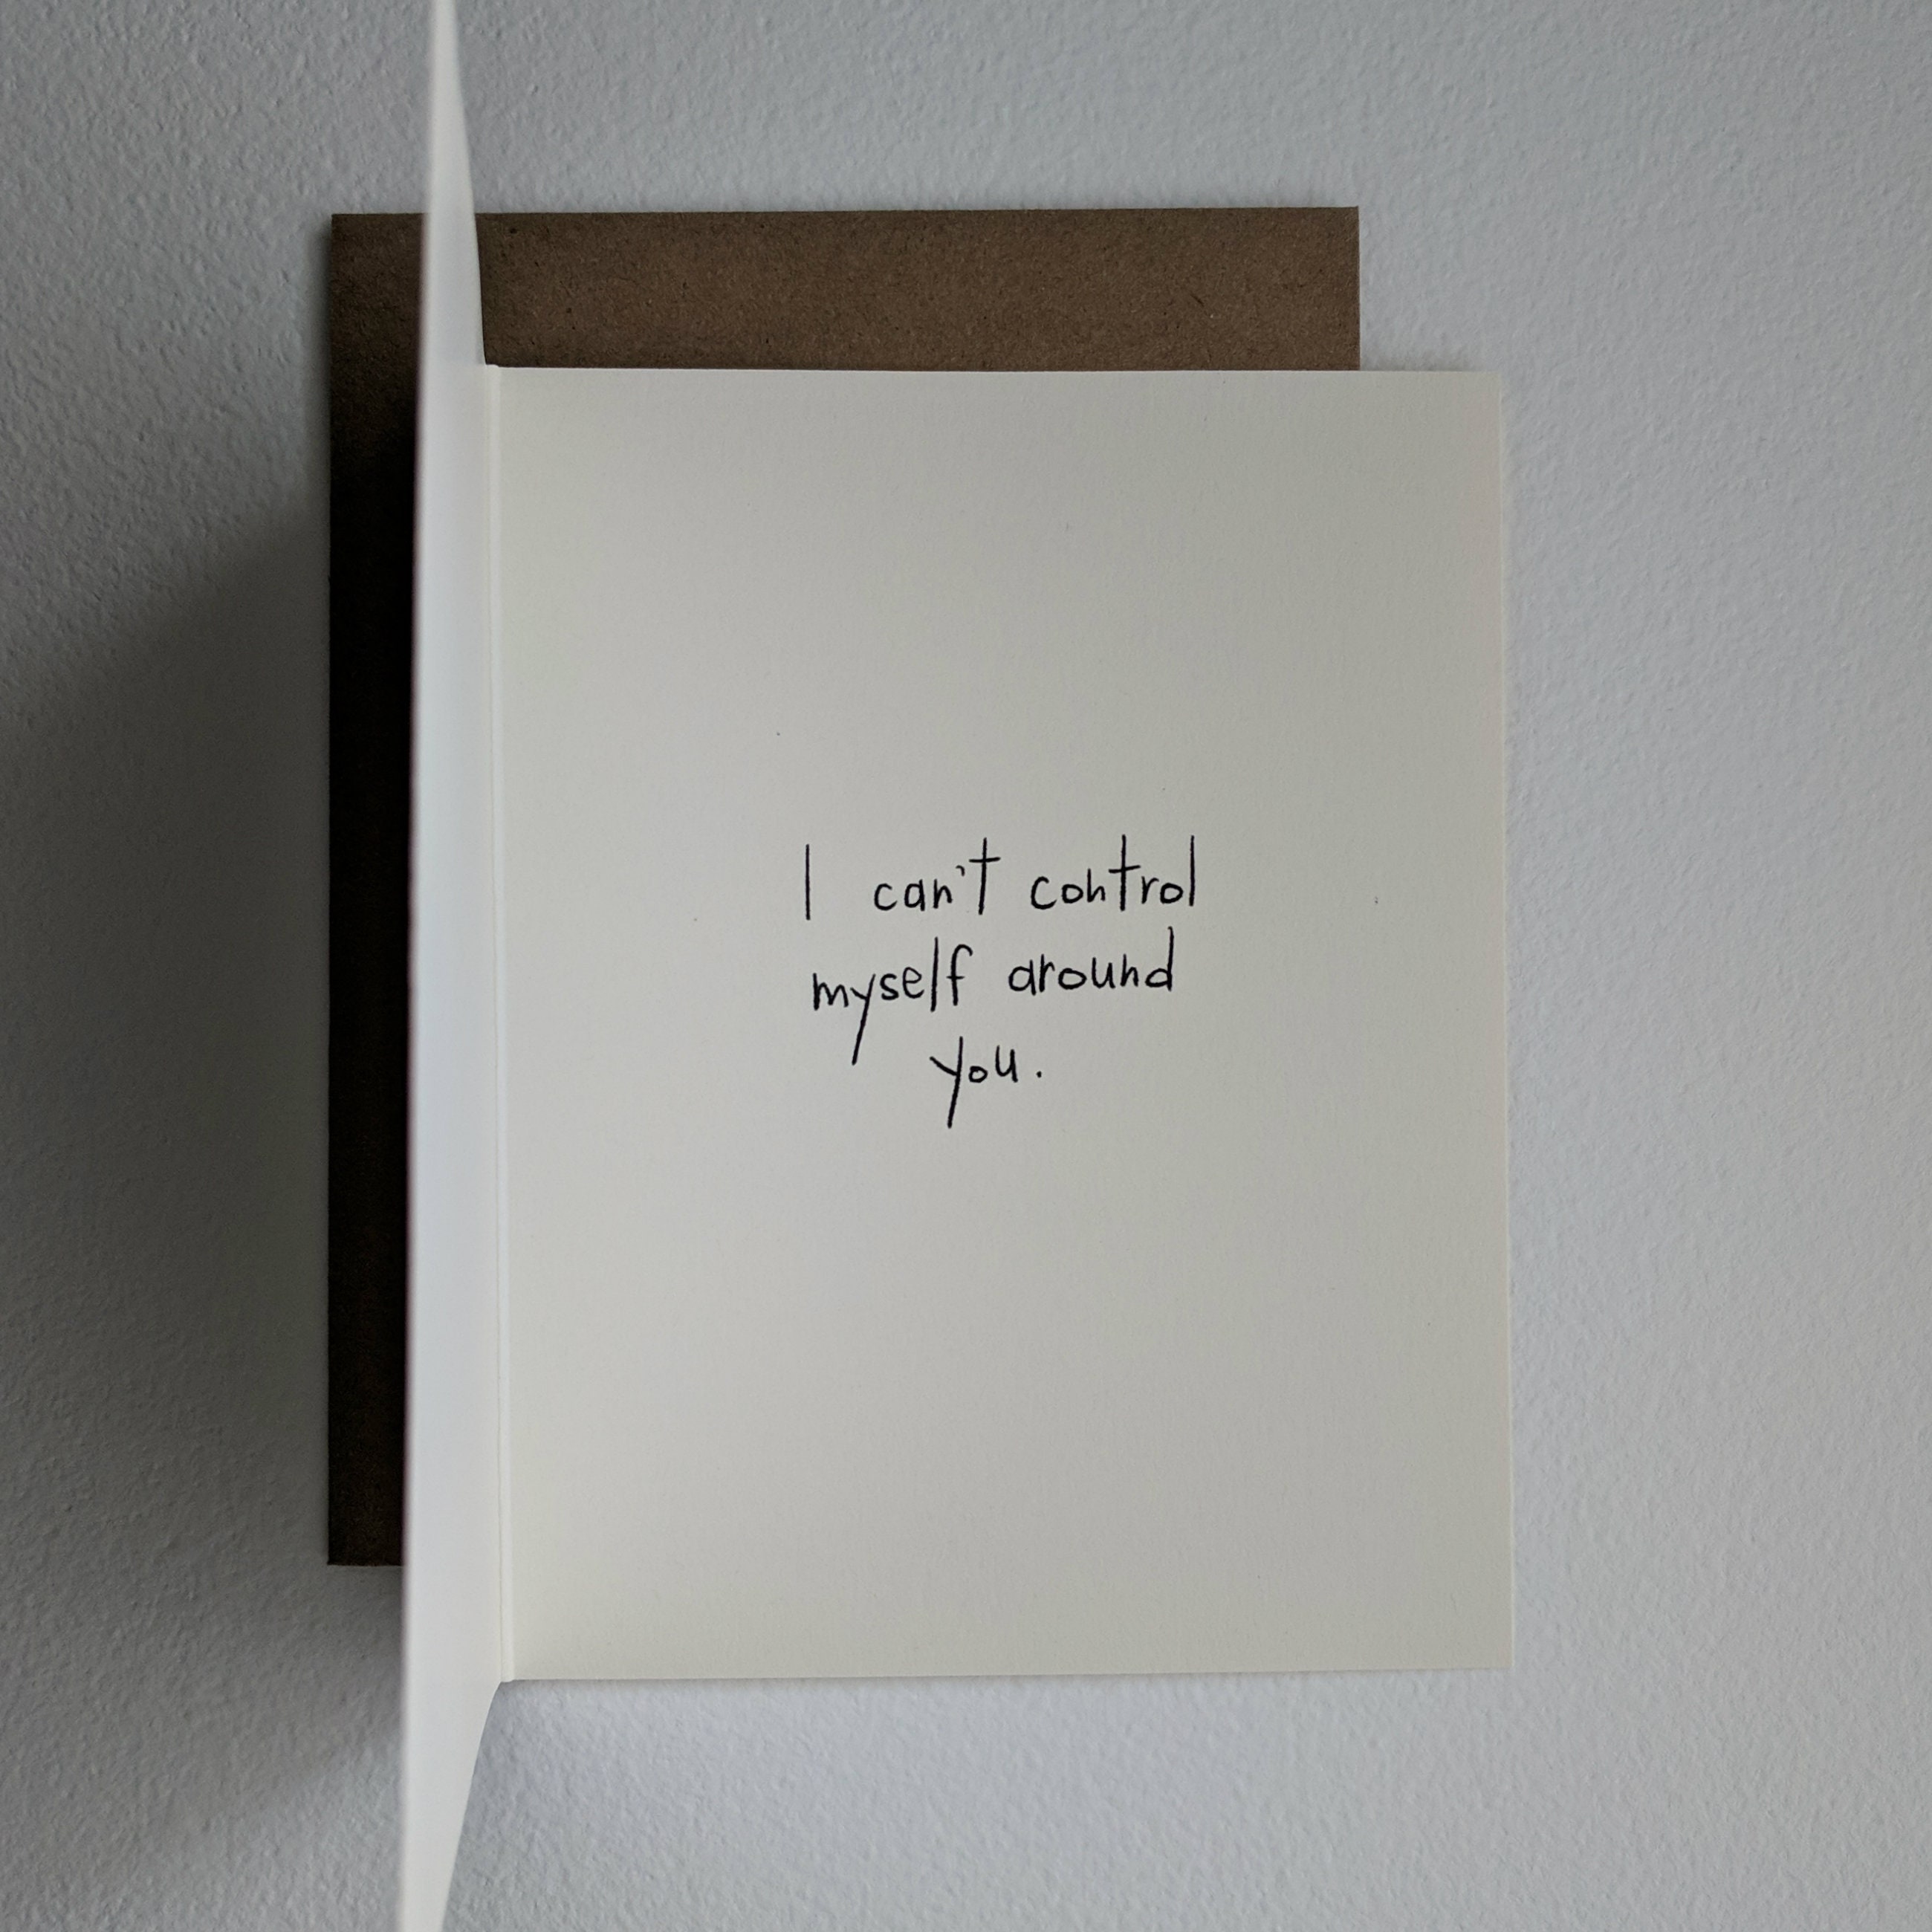 I can't control
myself around
you.